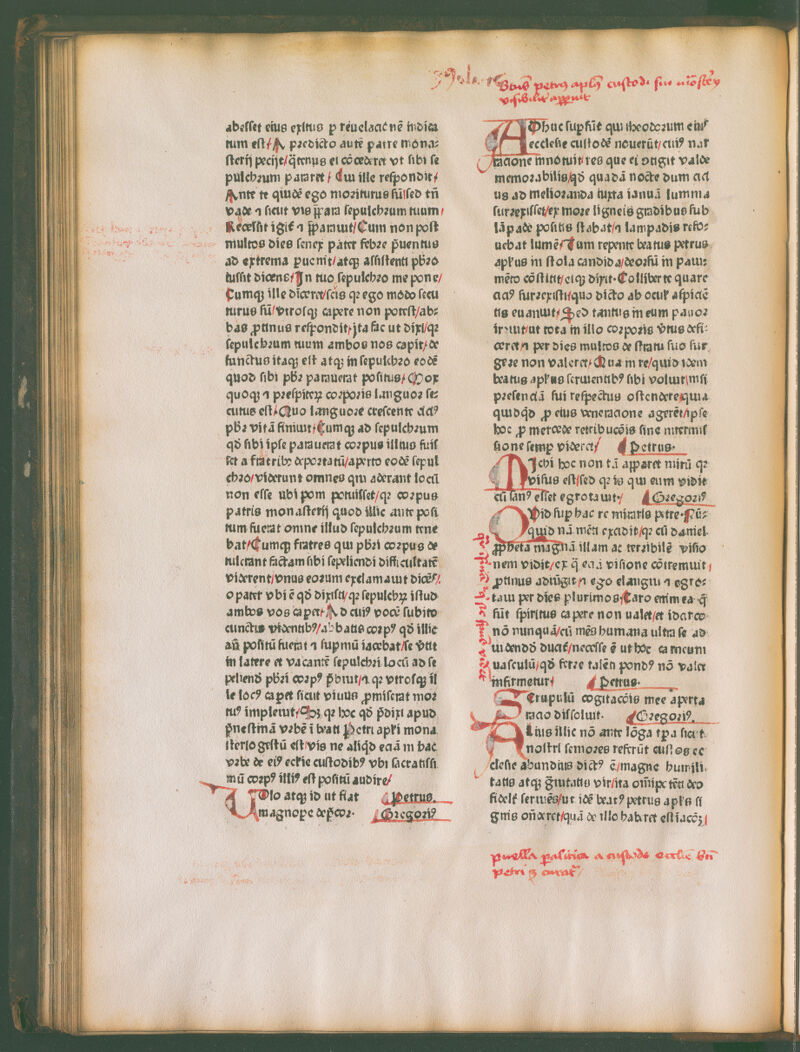 abesset eius exitus ꝑ reuelacōnē indica
tum est/A p̄redicto autē patre mona⸗
sterij pecijt/q̄tenus ei cōcederet vt sibi se
pulchrum pararet/Cui ille respondit/
Ante te quidē ego moriturus sū/sed tn̄
vade ⁊ sicut vis p̄para sepulchrum tuum/
Recessit igit̄ ⁊ p̄parauit/Cum non post
multos dies senex pater febre p̄uentus
ad extrema ꝑuenit/atqꝫ assistenti pb̄ro
iussit dicens/In tuo sepulchro me pone/
Cumqꝫ ille dic̄eret/scis qꝛ ego modo secu
turus sū/vtrosqꝫ capere non potest/ab⸗
bas ꝓtinus respondit/ita fac ut dixi/qꝛ
sepulchrum tuum ambos nos capit/de
functus itaqꝫ est atqꝫ in sepulchro eodē
quod sibi pb̄r parauerat positus/Mox
quoqꝫ ⁊ presꝑiteꝝ corporis languor se⸗
cutus est/Quo languore crescente citiꝰ
pb̄r vitā finiuit/Cumqꝫ ad sepulchrum
qd̄ sibi ipse parauerat corpus illius fuis
set a fratribꝫ deportatū/aperto eodē sepul
chro/viderunt omnes qui aderant locū
non esse ubi pom potuisset/qꝛ corpus
patris monasterij quod illic ante posi
tum fuerat omne illud sepulchrum tene
bat/Cumqꝫ fratres qui pb̄ri corpus de
tulerant factam sibi sepeliendi difficultatē
viderent/vnus eorum exclamauit dicēs/
o pater vbi ē qd̄ dixisti/qꝛ sepulchrꝫ istud
ambos vos caperet/Ad cuiꝰ vocē subito
cunctis videntibꝰ/abbatis corpꝰ qd̄ illic
an̄ positū fuerat ⁊ supinū iacebat/se v̄tit
in latere et vacantē sepulchri locū ad se
peliend pb̄ri corpꝰ p̄buit/⁊ qꝛ vtrosqꝫ il
le locꝰ caperet sicut viuus ꝓmiserat mor
tuꝰ impleuit/Sꝫ qꝛ hoc qd̄ p̄dixi apud
p̄nestinā vrbē ī beati Petri apl̄i mona
sterio gestū est/vis ne aliqd̄ eciā in hac
vrbe de eiꝰ eccl̄ie custodibꝰ vbi sacratissi
mū corpꝰ illiꝰ est positū audire/
Volo atqꝫ id ut fiat Petrus.
magnopere dep̄cor. Gregoriꝰ
Btus petrus apl̄s custodi sui mōstery
visibilit̄ apparuit
Adhuc suꝑsūt qui theodorum eiusdē
ecclesie custodē nouerūt/cuiꝰ nar
racione innotuit/res que ei ꝯtigit valde
memorabilis/qd̄ quadā nocte dum citi
us ad melioranda iuxta ianuā lumina
surrexisset/ex more ligneis gradibus sub
lāpade positis stabat/⁊ lampadis refo⸗
uebat lumē/Cum repente beatus petrus
apl̄us in stola candida/deorsū in paui⸗
mēto cōstitit/eiqꝫ dixit/Colliberte quare
citiꝰ surrexisti/quo dicto ab oculꝭ aspiciē
tis euanuit/Sed tantus in eum pauor
irruit/ut tota in illo corporis v̄tus defi⸗
ceret/⁊ per dies multos de stratu suo sur
gere non valeret/Qua in re/quid idem
beatus apl̄us seruientibꝰ sibi voluit/nisi
presenciā sui respectus ostendere/quia
quidqd̄ ꝓ eius veneracione agerēt/ipse
hoc ꝓ mercede retribucōis sine intermis
sione semp videret/ Petrus.
Michi hoc non tā apparet mirū qꝛ
visus est/sed qꝛ is qui eum vidit
cū sanꝰ esset egrotauit/ Gregoriꝰ
Quid suꝑ hac re miraris petre/Nū⸗
quid nā mēti excidit/qꝛ cū daniel
ꝓpheta magnā illam ac terribilē visio
nem vidit/ex q̄ eciā visione cōtremuit/
ꝓtinus adiūgit/⁊ ego elangui ⁊ egro⸗
taui per dies plurimos/Caro enim ea q̄
sūt spiritus capere non ualet/et idcirco
nō nunquā/cū mēs humana ultra se ad
uidendū ducit̄/necesse ē ut hoc carneum
uasculū/qd̄ ferre talen̄ pondꝰ nō valet
infirmetur/ Petrus.
Scrupulū cogitaccōis mee aperta
racio dissoluit. Gregoriꝰ.
Alius illic nō ante lōga tꝑa sicut
nostri seniores referūt custos ec
clesie abundius dictꝰ ē/magne humili⸗
tatis atqꝫ grauitatis vir/ita omīpotēti deo
fidelꝭ seruiēs/ut idē beatꝰ petrus apl̄s si
gnis on̄deret/quā de illo haberet estiacōꝫ/
puella palitica a custode ecclīe btī
petri ꝫ curat̄